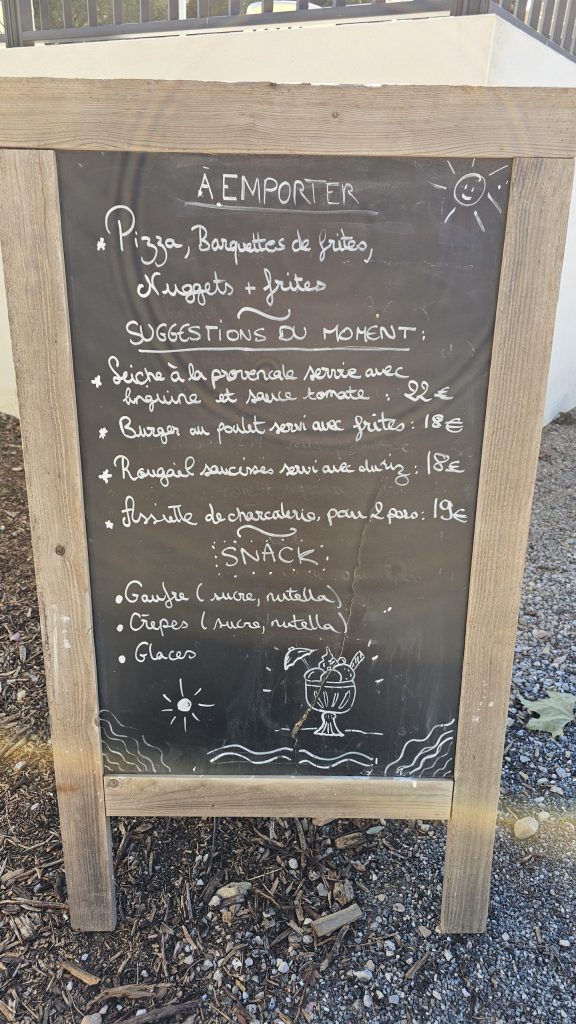 À EMPORTER
* Pizza, Barquettes de frites,
Nuggets + frites
SUGGESTIONS DU MOMENT :
* Seiche à la provencale servie avec
linguine et sauce tomate : 22 €
* Burger au poulet servi avec frites : 18 €
* Rougail saucisses servi avec du riz : 18 €
* Assiette de charcuterie, pour 2 pers : 19 €
SNACK
• Gaufre (sucre, nutella)
• Crêpes (sucre, nutella)
• Glaces